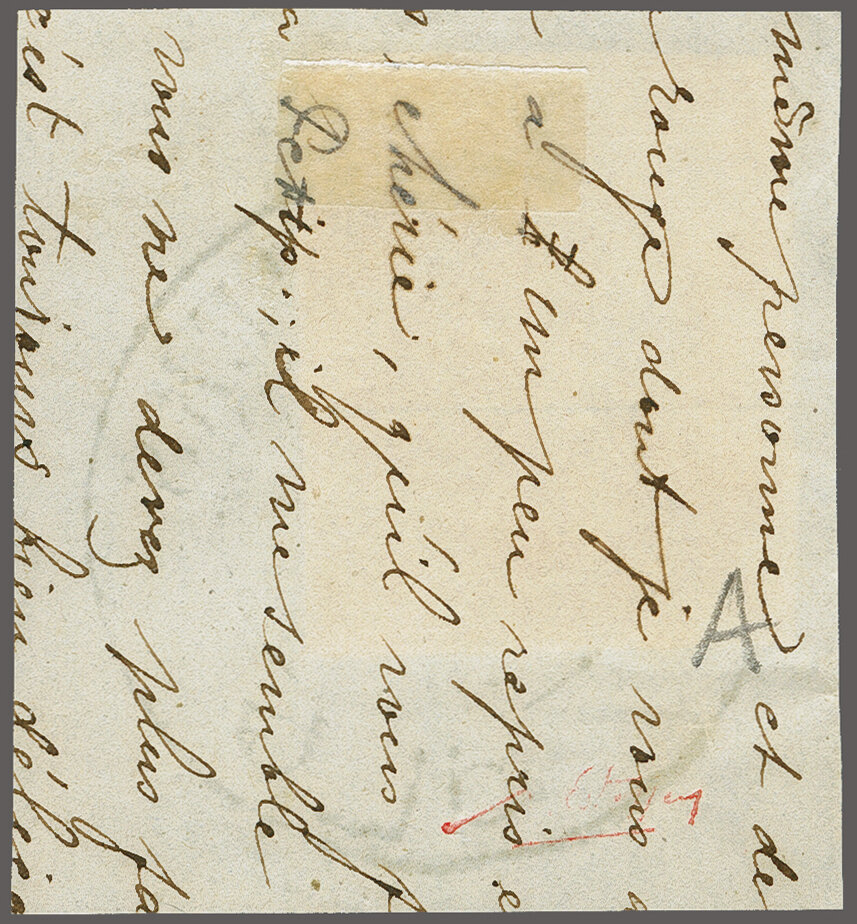 même personne et de
rouge dont je vous
a un peu repris
chérie, qu'il vous
Petite; il me semble
vous ne devez plus
c'est toujours bien
A